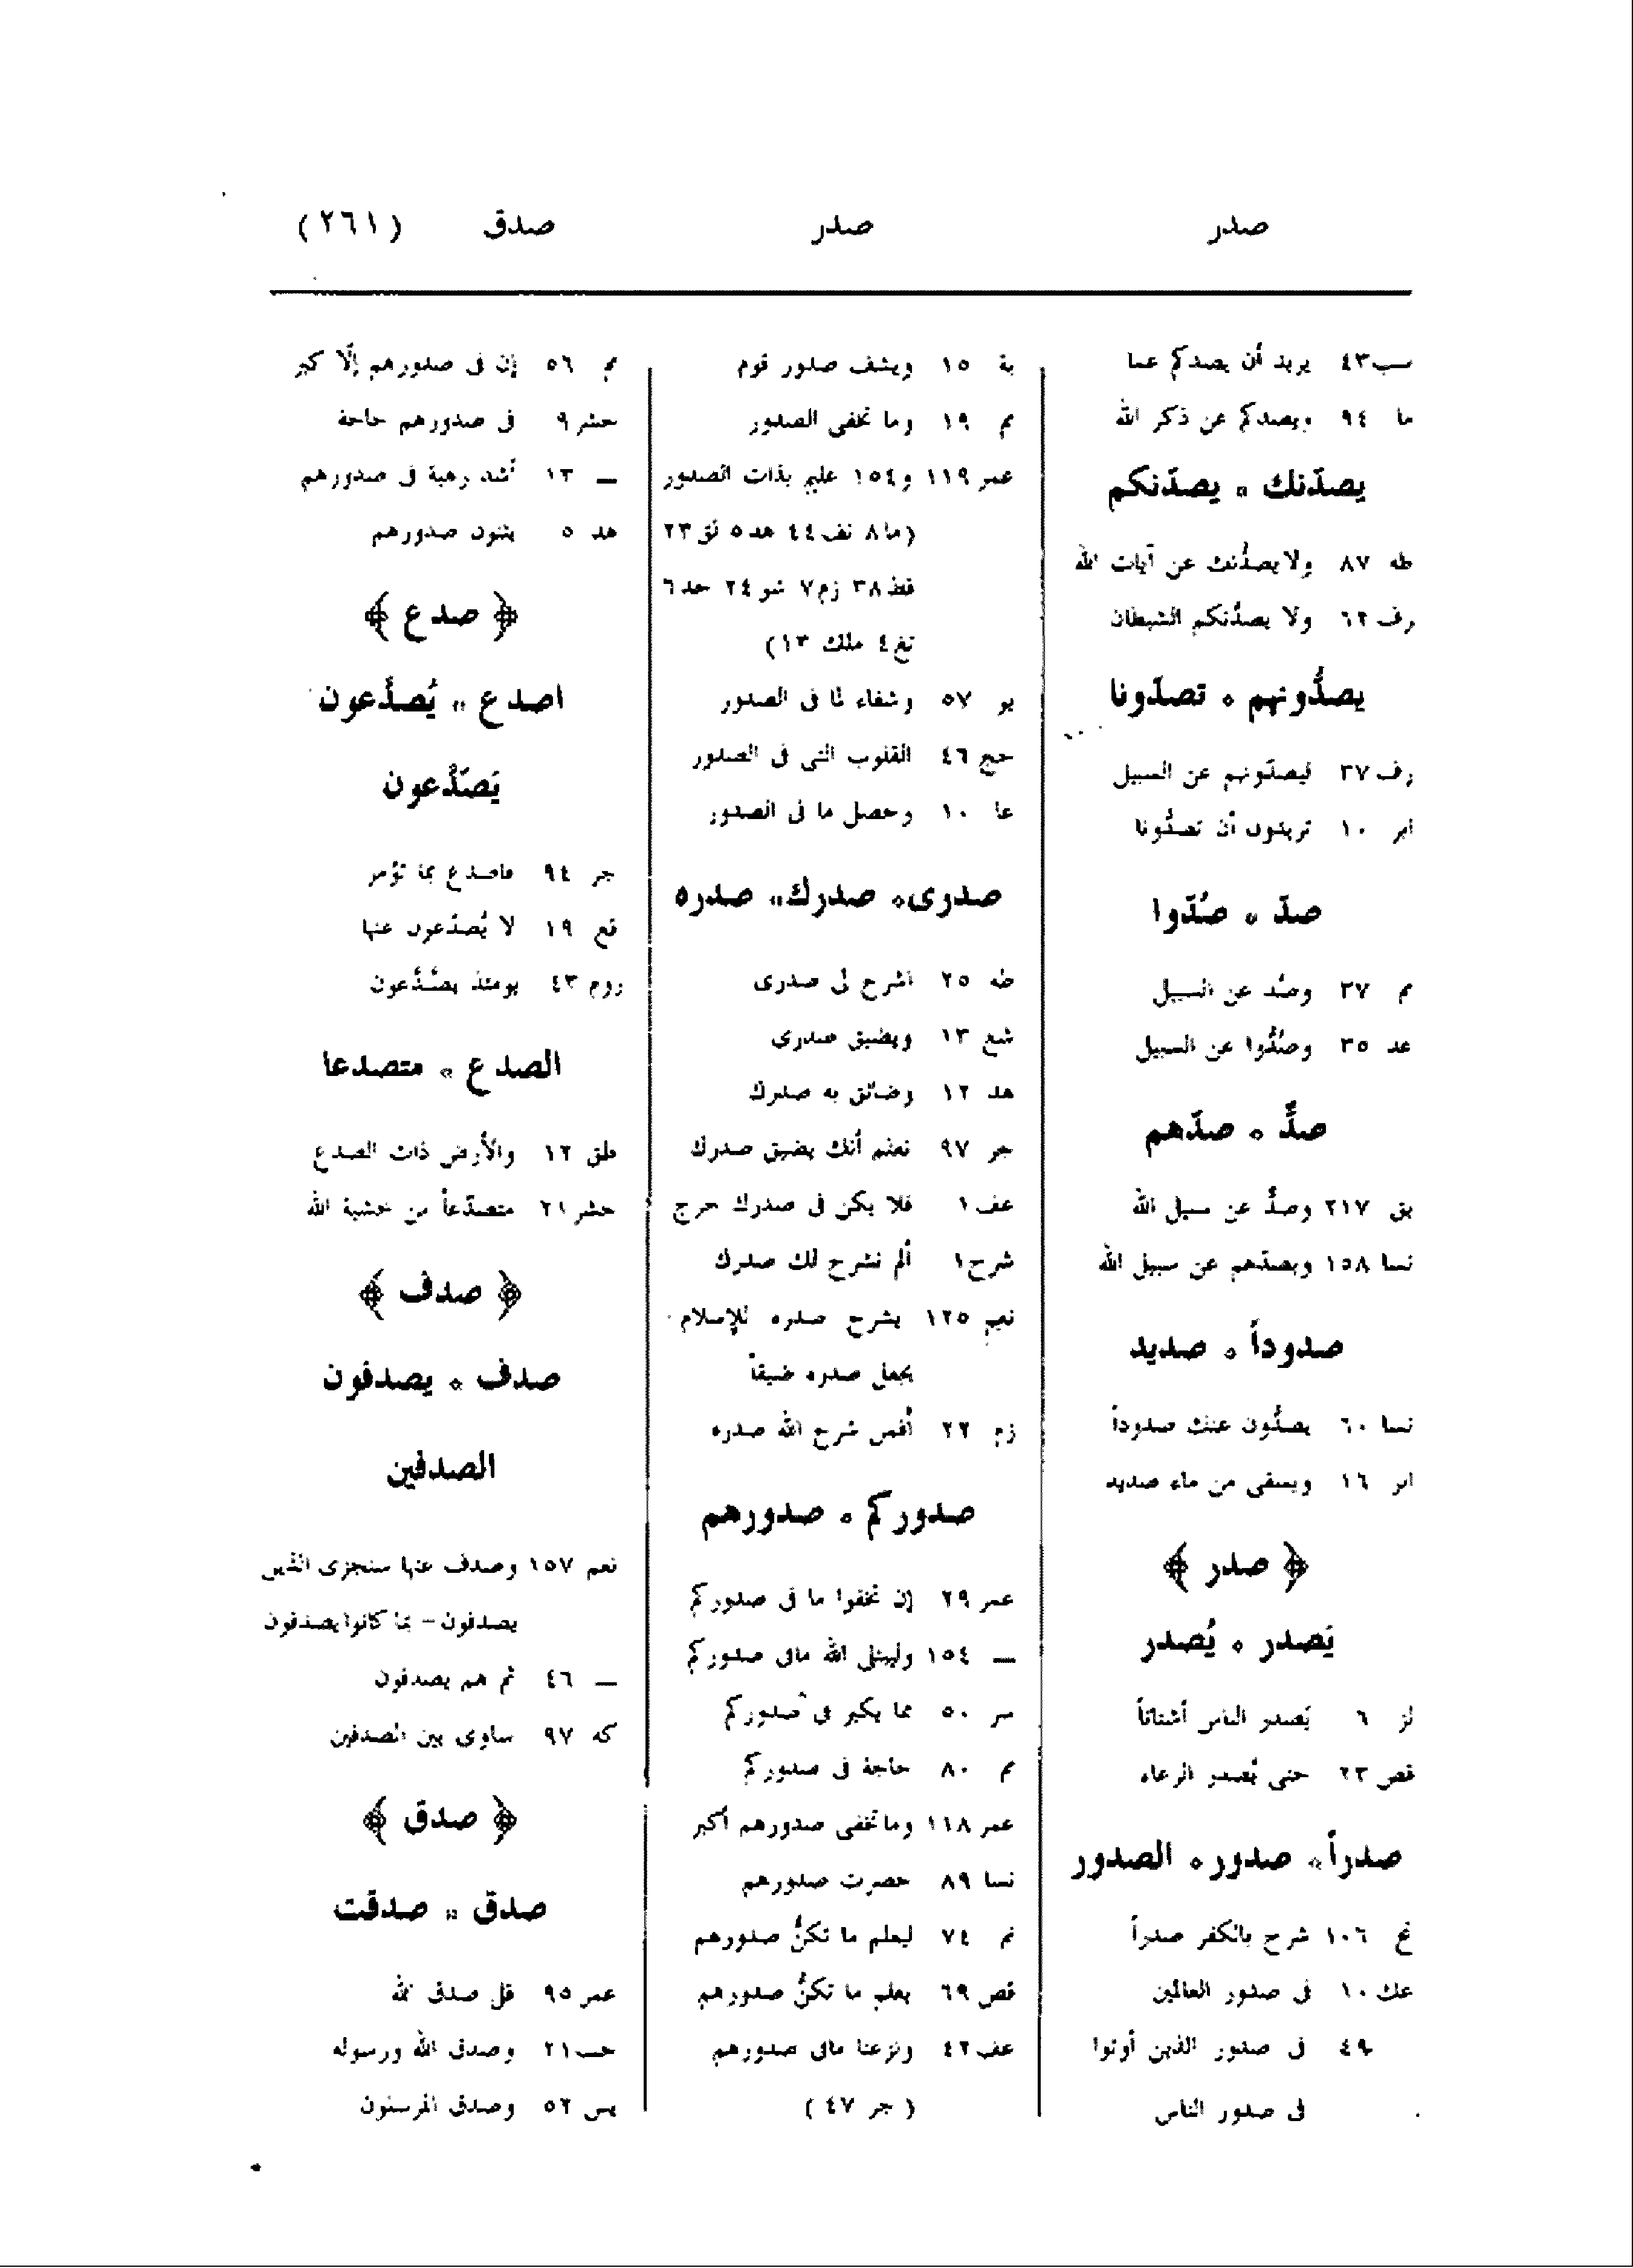 صدر
صدر
صدق (٢٦١)
سب ٤٣ يريد أن يصدكم عما
ما ٩٤ ويصدكم عن ذكر الله
يصدّنك * يصدّنكم
طه ٨٧ ولا يصدُّنك عن آيات الله
رف ٦٢ ولا يصدُّنكم الشيطان
يصدُّونهم * تصدّونا
رف ٣٧ ليصدّونهم عن السبيل
ابر ١٠ تريدون أن تصدُّونا
صدّ * صُدّوا
مم ٣٧ وصُد عن السبيل
عد ٣٥ وصُدُّوا عن السبيل
صدٌّ * صدّهم
بق ٢١٧ وصدٌّ عن سبيل الله
نسا ١٥٨ وبصدّهم عن سبيل الله
صدوداً * صديد
نسا ٦٠ يصدُّون عنك صدوداً
ابر ١٦ ويسقى من ماء صديد
﴿ صدر ﴾
يَصدر * يُصدر
لز ٦ يَصدر الناس أشتاتاً
قص ٢٣ حتى يُصدر الرعاء
صدراً * صدور * الصدور
نح ١٠٦ شرح بالكفر صدراً
عك ١٠ فى صدور العالمين
٤٩ فى صدور الذين أوتوا
فى صدور الناس
بة ١٥ ويشف صدور قوم
مم ١٩ وما تخفى الصدور
عمر ١١٩ و١٥٤ عليم بذات الصدور
(ما ٨ نف ٤٤ هد ٥ لق ٢٣
فط ٣٨ زم ٧ شو ٢٤ حد ٦
تغ ٤ ملك ١٣)
يو ٥٧ وشفاء لما فى الصدور
حج ٤٦ القلوب التى فى الصدور
عا ١٠ وحصل ما فى الصدور
صدرى * صدرك * صدره
طه ٢٥ اشرح لى صدرى
شع ١٣ ويضيق صدرى
هد ١٢ وضائق به صدرك
جر ٩٧ نعلم أنك يضيق صدرك
عف ١ فلا يكن فى صدرك حرج
شرح ١ ألم نشرح لك صدرك
نعم ١٢٥ يشرح صدره للإسلام
يجعل صدره ضيقاً
زم ٢٢ أفمن شرح الله صدره
صدوركم * صدورهم
عمر ٢٩ إن تخفوا ما فى صدوركم
— ١٥٤ وليبتلى الله مافى صدوركم
سر ٥٠ مما يكبر فى صدوركم
مم ٨٠ حاجة فى صدوركم
عمر ١١٨ وما تخفى صدورهم أكبر
نسا ٨٩ حصرت صدورهم
نم ٧٤ ليعلم ما تكنُّ صدورهم
قص ٦٩ يعلم ما تكنُّ صدورهم
عف ٤٢ ونزعنا مافى صدورهم
(جر ٤٧)
مم ٥٦ إن فى صدورهم إلّا كبر
حشر ٩ فى صدورهم حاجة
— ١٣ أشد رهبة فى صدورهم
هد ٥ يثنون صدورهم
﴿ صدع ﴾
اصدع * يُصدَّعون
يَصَّدَّعون
جر ٩٤ فاصدع بما تؤمر
قع ١٩ لا يُصدّعون عنها
روم ٤٣ يومئذ يصَّدَّعون
الصدع * متصدعا
طق ١٢ والأرض ذات الصدع
حشر ٢١ متصدّعاً من خشية الله
﴿ صدف ﴾
صدف * يصدفون
الصدفين
نعم ١٥٧ وصدف عنها سنجزى الذين
يصدفون – بما كانوا يصدفون
— ٤٦ ثم هم يصدفون
كه ٩٧ ساوى بين الصدفين
﴿ صدق ﴾
صدق * صدقت
عمر ٩٥ قل صدق الله
حب ٢١ وصدق الله ورسوله
يس ٥٢ وصدق المرسلون